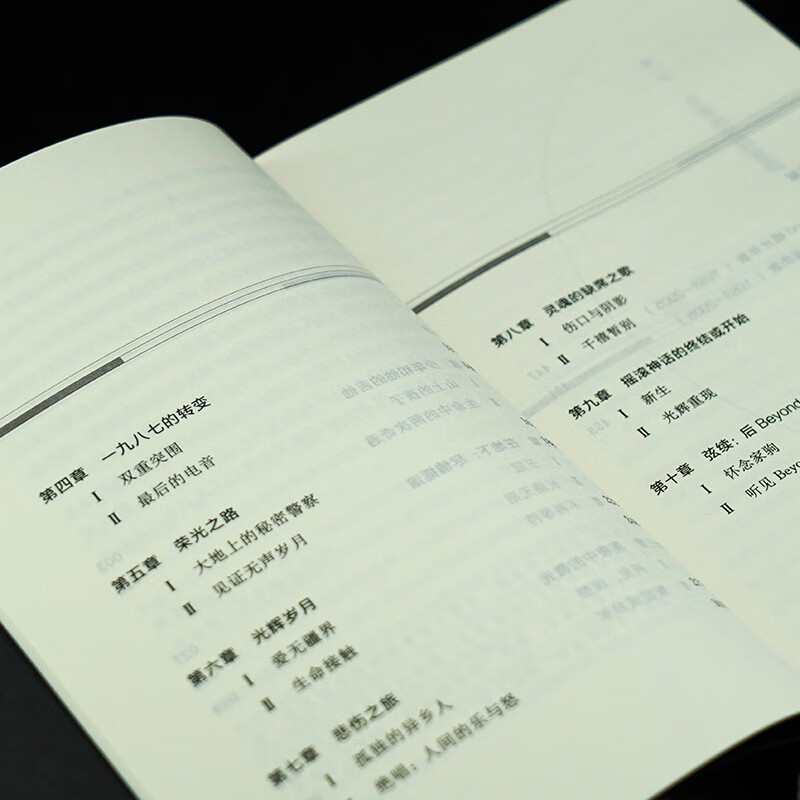 第四章 一九八七的转变
I 双重突围
II 最后的电音
第五章 荣光之路
I 大地上的秘密警察
II 见证无声岁月
第六章 光辉岁月
I 爱无疆界
II 生命接触
第七章 悲伤之旅
I 孤独的异乡人
II 绝唱：人间的乐与怒
第八章 灵魂的缺席之歌
I 伤口与阴影
II 千禧暂别
第九章 摇滚神话的终结或开始
I 新生
II 光辉重现
第十章 弦续：后Beyond
I 怀念家驹
II 听见Beyo